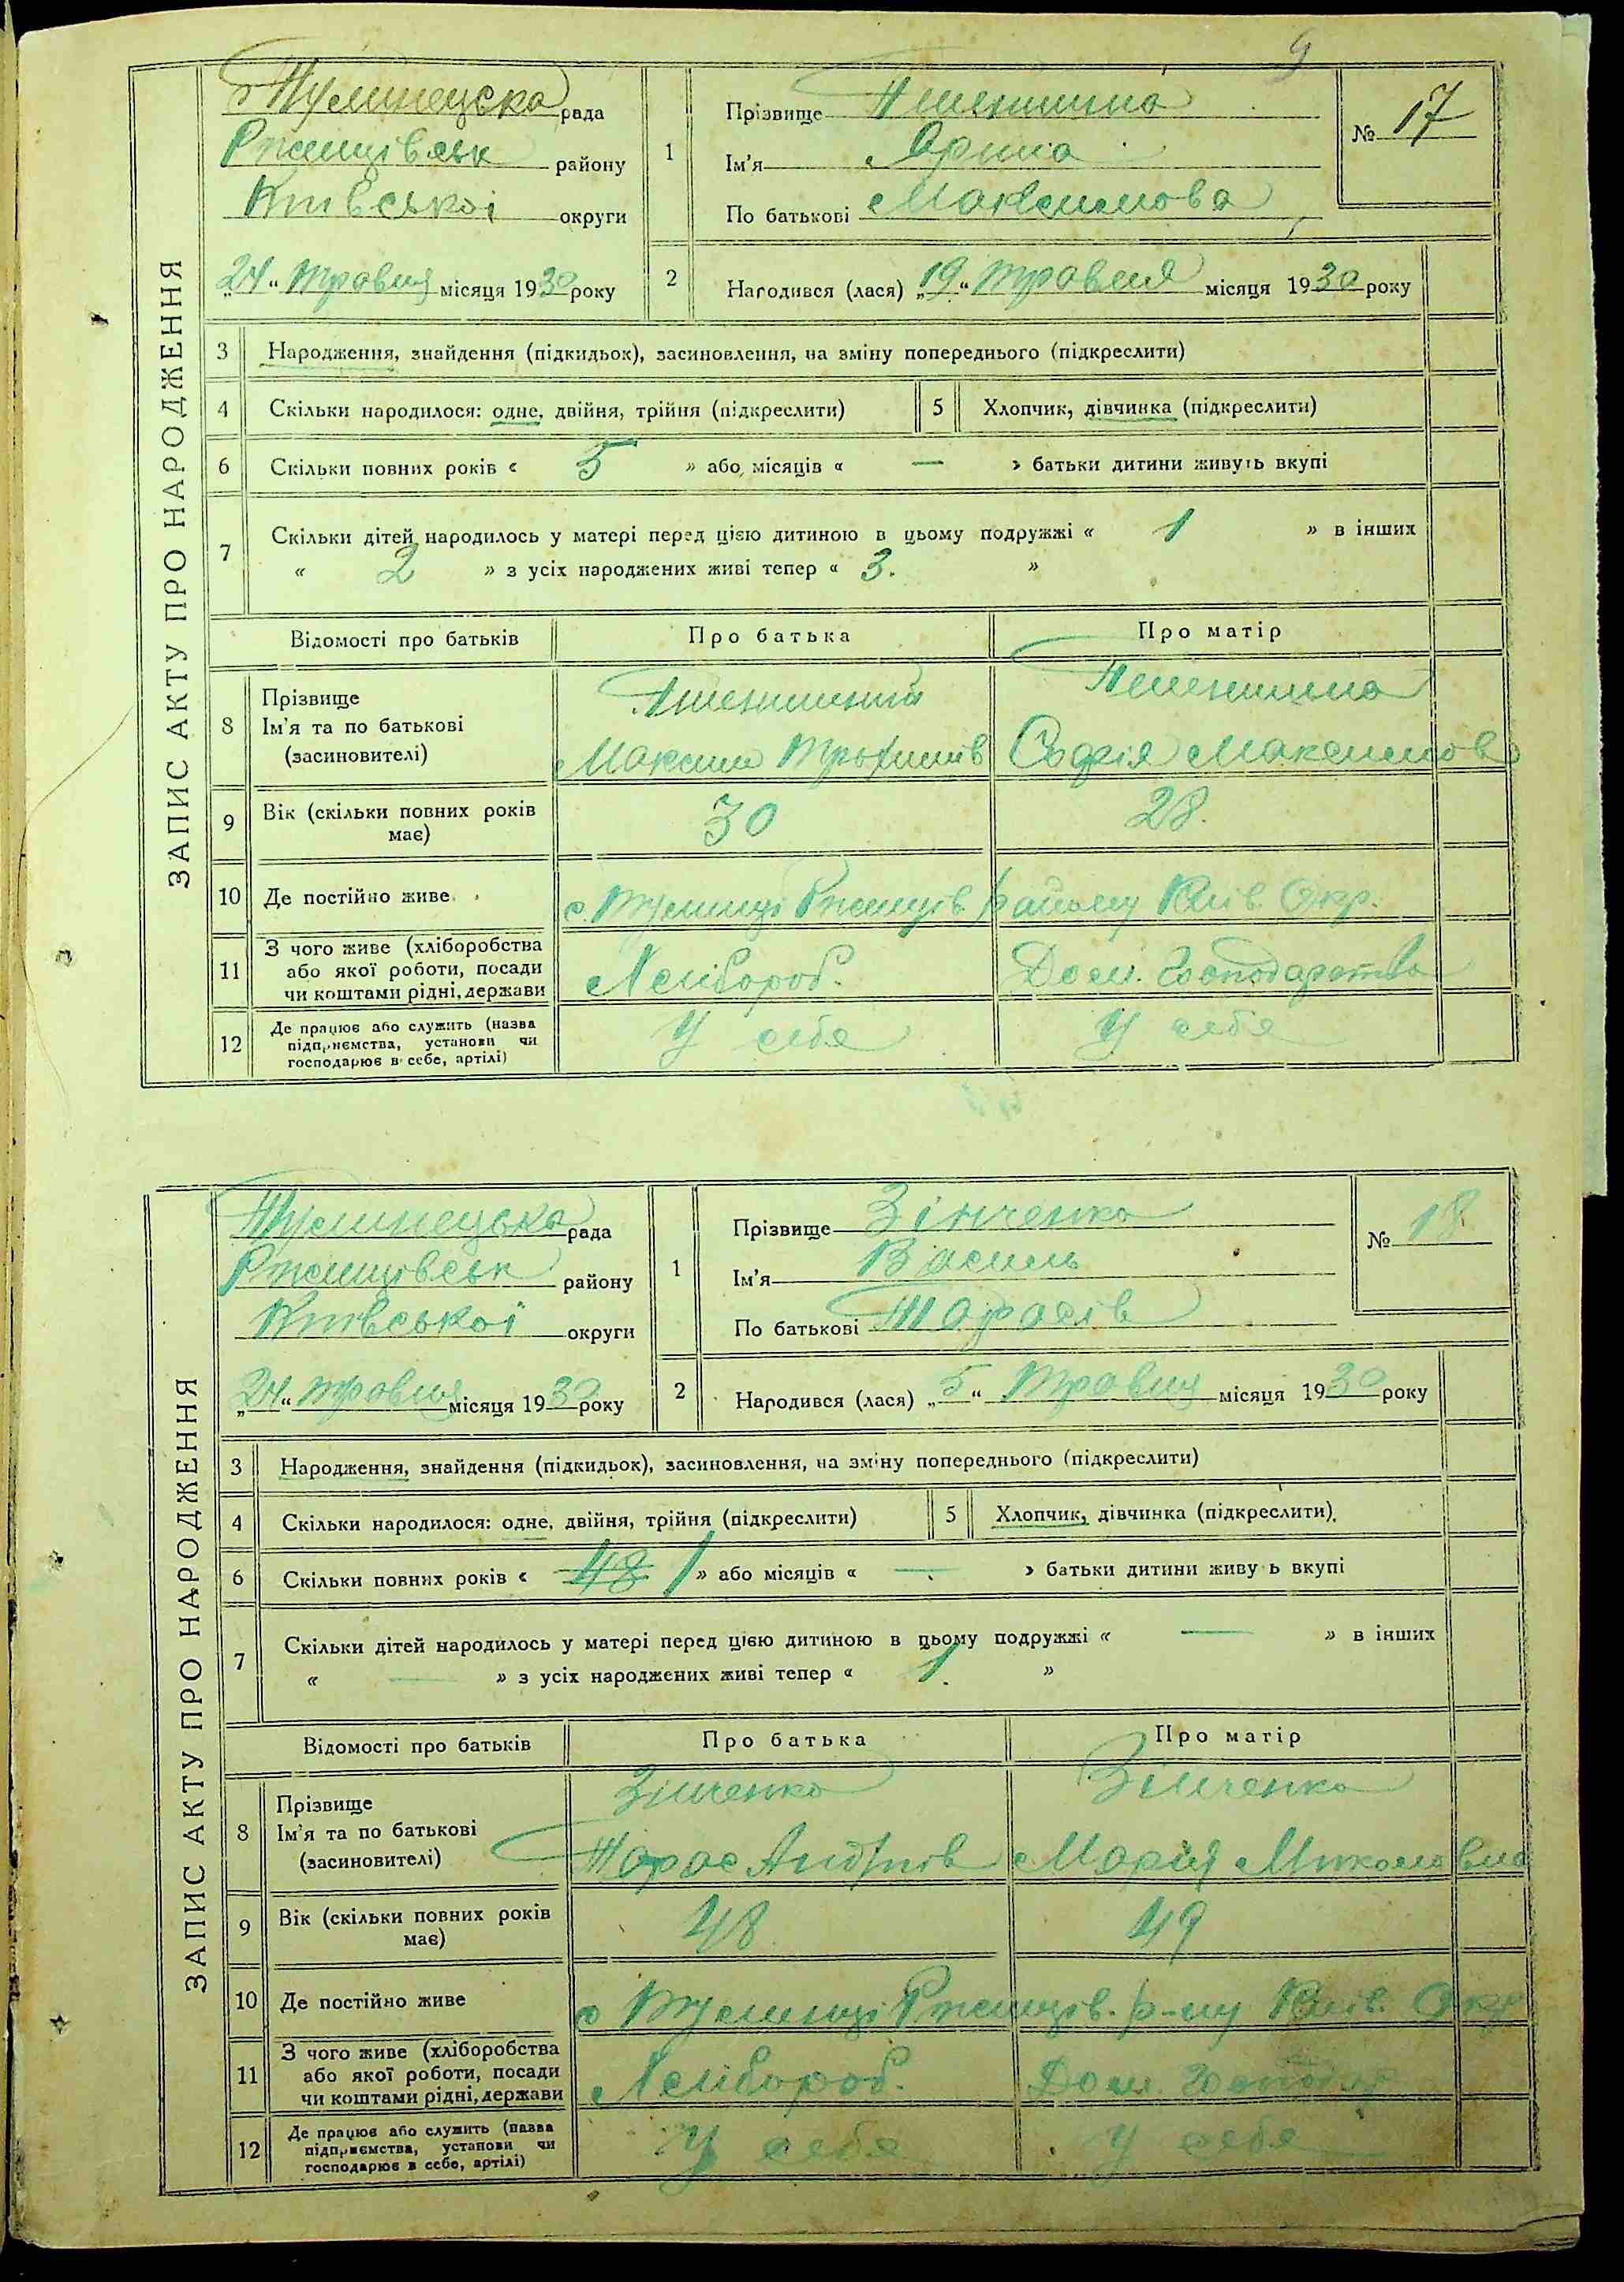 9
ЗАПИС АКТУ ПРО НАРОДЖЕННЯ
Тулинецька рада
Ржищівськ району
Київської округи
„24“ травня місяця 1930 року
1
Прізвище Пшенична
Ім'я Орина
По батькові Максимова
№ 17
2
Народився (лася) „19“ травня місяця 1930 року
3 Народження, знайдення (підкидьок), засиновлення, на зміну попереднього (підкреслити)
4 Скільки народилося: одне, двійня, трійня (підкреслити) 5 Хлопчик, дівчинка (підкреслити)
6 Скільки повних років « 5 » або місяців « — » батьки дитини живуть вкупі
7 Скільки дітей народилось у матері перед цією дитиною в цьому подружжі « 1 » в інших
« 2 » з усіх народжених живі тепер « 3. »
Відомості про батьків Про батька Про матір
8 Прізвище
Ім'я та по батькові
(засиновителі)
Пшенична
Максим Трохимів Софія Максимова
9 Вік (скільки повних років
має)
30 28.
10 Де постійно живе с. Тулинці Ржищів. району Київ. Окр.
11 З чого живе (хліборобства
або якої роботи, посади
чи коштами рідні, держави
Хлібороб. Дом. Господарство
12 Де працює або служить (назва
підприємства, установи чи
господарює в себе, артілі)
У себе У себе
ЗАПИС АКТУ ПРО НАРОДЖЕННЯ
Тулинецька рада
Ржищівськ району
Київської округи
„24“ травня місяця 1930 року
1
Прізвище Зінченко
Ім'я Василь
По батькові Тарасів
№ 18
2
Народився (лася) „5“ Травня місяця 1930 року
3 Народження, знайдення (підкидьок), засиновлення, на зміну попереднього (підкреслити)
4 Скільки народилося: одне, двійня, трійня (підкреслити) 5 Хлопчик, дівчинка (підкреслити)
6 Скільки повних років « 48 1 » або місяців « — » батьки дитини живуь вкупі
7 Скільки дітей народилось у матері перед цією дитиною в цьому подружжі « — » в інших
« — » з усіх народжених живі тепер « 1. »
Відомості про батьків Про батька Про матір
8 Прізвище
Ім'я та по батькові
(засиновителі)
Зінченко Зінченко
Тарас Андріїв Марія Миколаївна
9 Вік (скільки повних років
має)
48 49
10 Де постійно живе с Тулинці Ржищів. р-ну Київ. Окр
11 З чого живе (хліборобства
або якої роботи, посади
чи коштами рідні, держави
Хлібороб. Дом. Господар
12 Де працює або служить (назва
підприємства, установи чи
господарює в себе, артілі)
У себе У себе